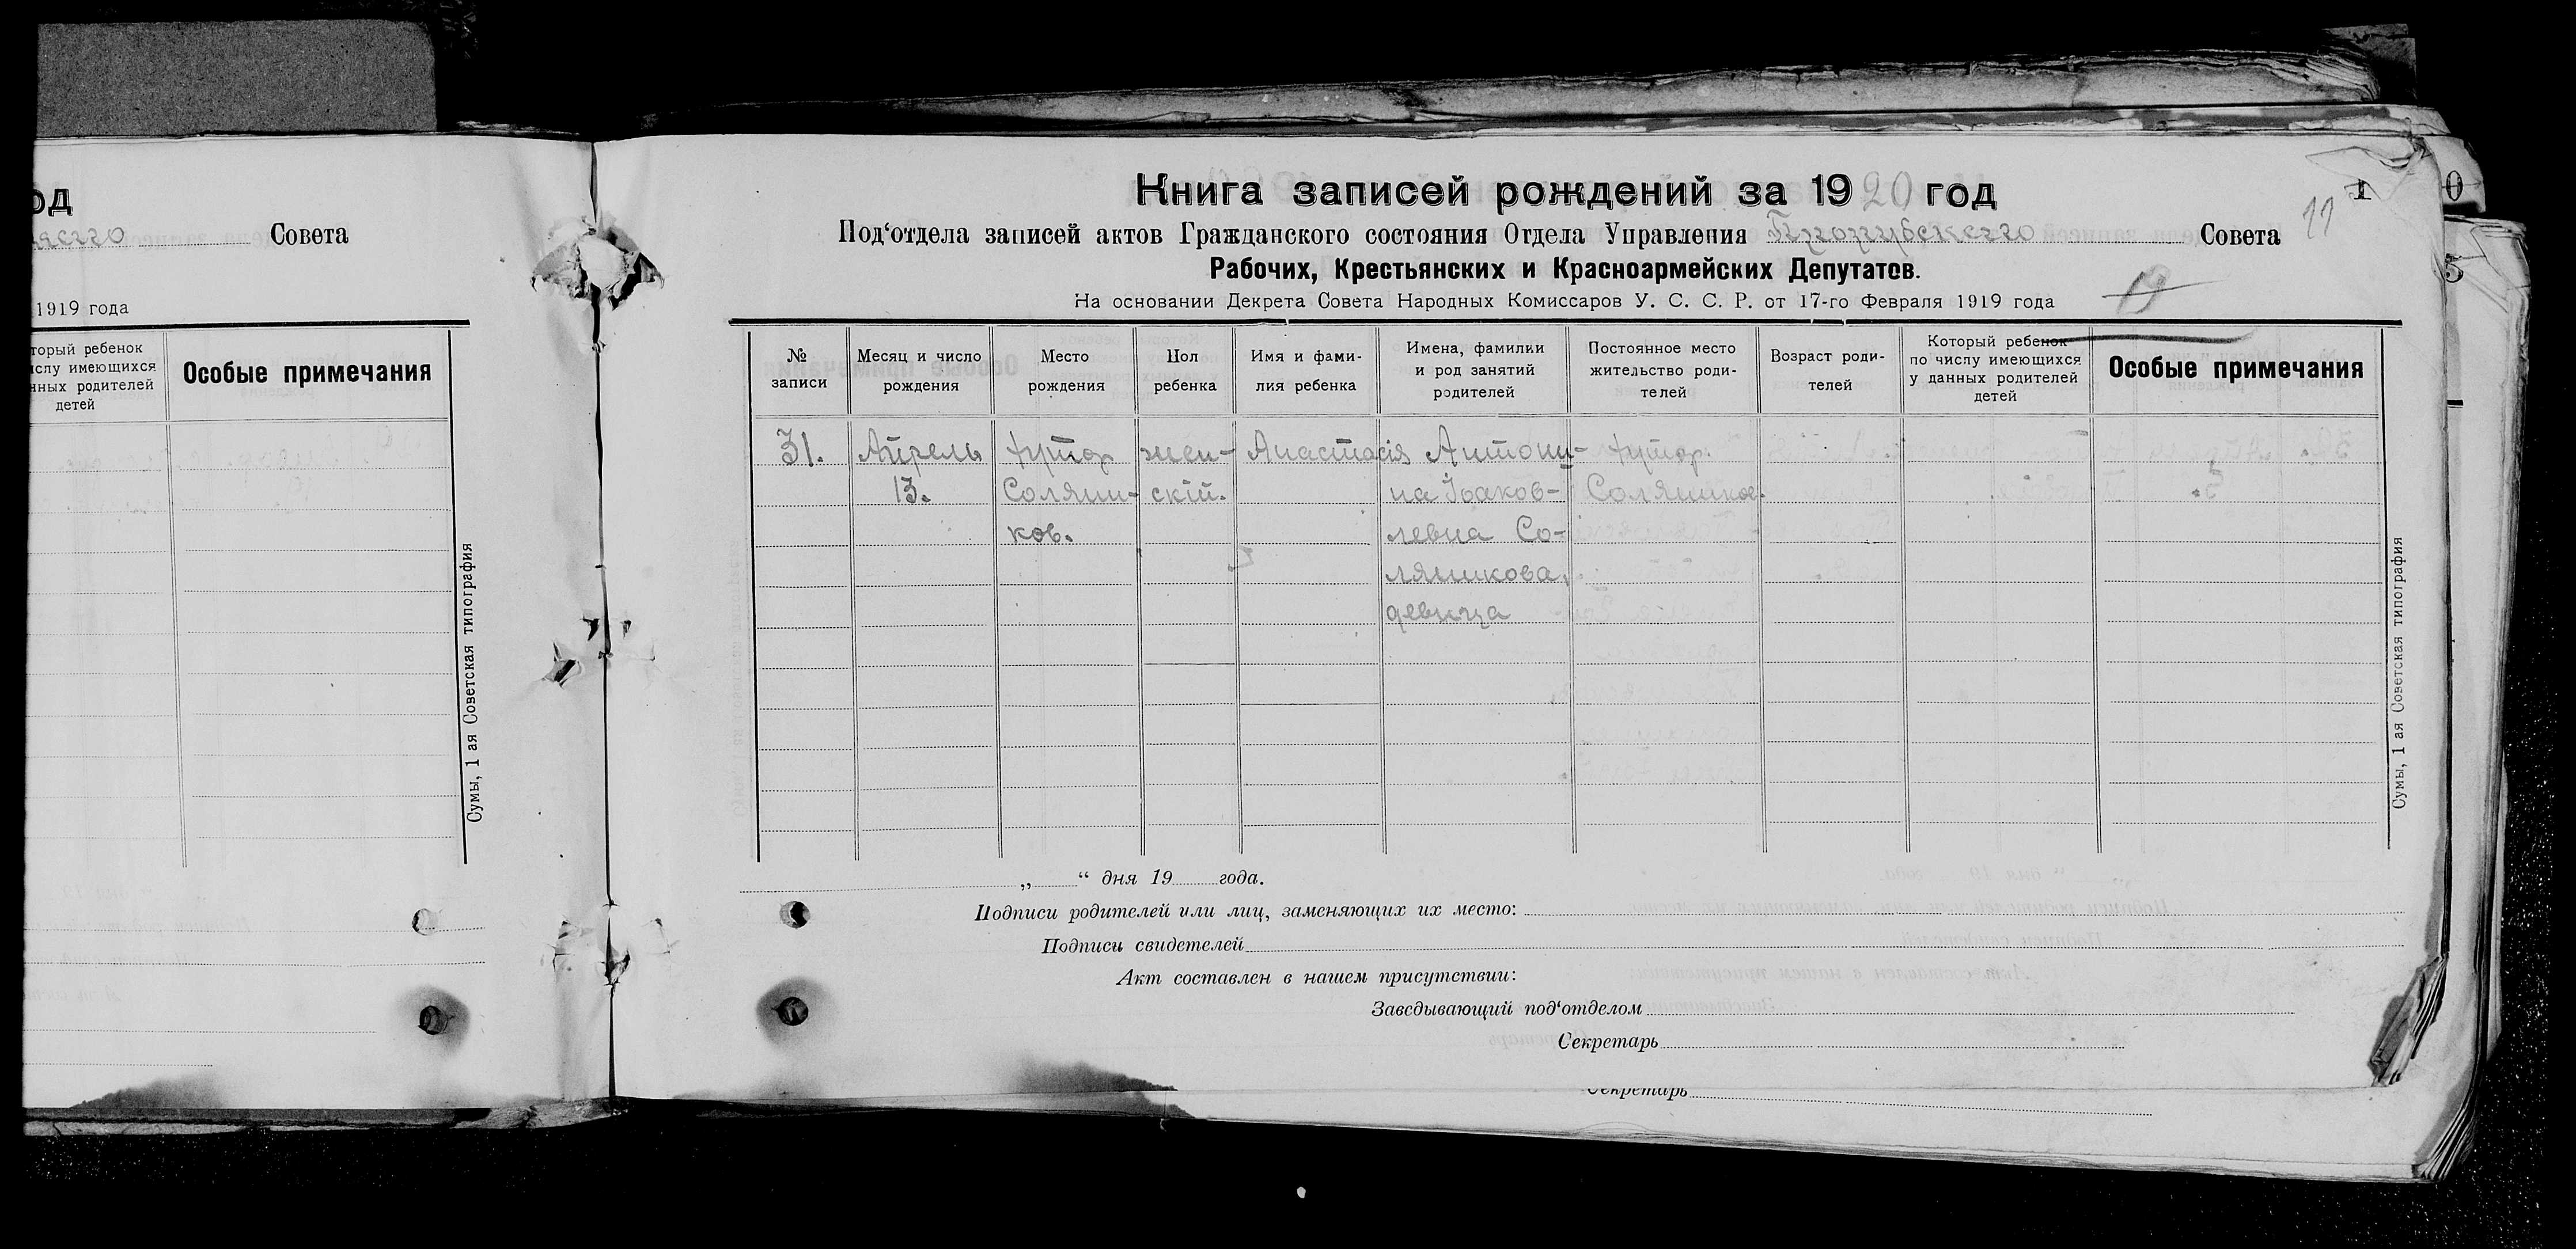 од
Совета
1919 года
торый ребенок
ислу имеющихся
нных родителей
детей
Особые примечания
Сумы, 1 ая Советская типография
Книга записей рождений за 1920 год
1
11
Под‘отдела записей актов Гражданского состояния Отдела Управления Совета
Рабочих, Крестьянских и Красноармейских Депутатов.
На основании Декрета Совета Народных Комиссаров У. С. С. Р. от 17-го Февраля 1919 года
19
№ записи
Месяц и число рождения
Место рождения
Пол ребенка
Имя и фами-
лия ребенка
Имена, фамилии
и род занятий
родителей
Постоянное место
жительство роди-
телей
Возраст роди-
телей
Который ребенок
по числу имеющихся
у данных родителей
детей
Особые примечания
31. Апрель хутор жен- Анастасія Антони- хутор.
13. Соляни- скій. на Іоаков- Соляников.
ков. левна Со-
ляникова,
девица
Сумы, 1 ая Советская типография
„ “ дня 19 года.
Подписи родителей или лиц, заменяющих их место:
Подписи свидетелей
Акт составлен в нашем присутствии:
Заведывающий под‘отделом
Секретарь
Секретарь